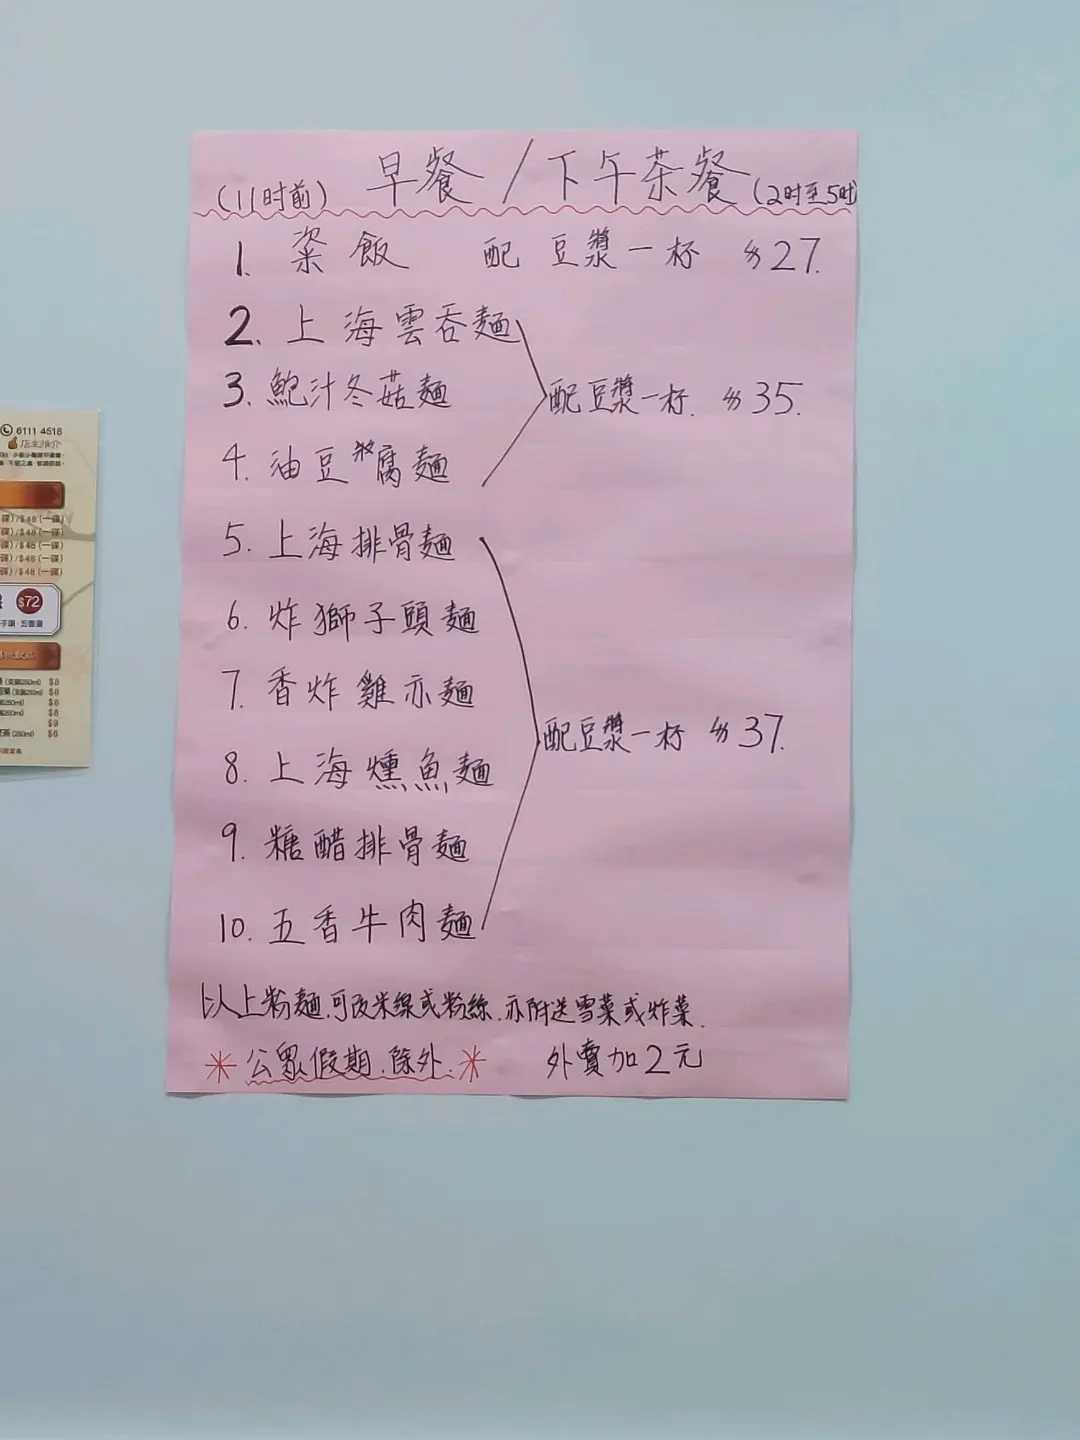 (11时前) 早餐 / 下午茶餐 (2时至5时)
1. 粢飯 配豆漿一杯 $27.
2. 上海雲吞麵
3. 鮑汁冬菇麵
配豆漿一杯. $35.
4. 油豆腐麵
5. 上海排骨麵
6. 炸獅子頭麵
7. 香炸雞亦麵
8. 上海燻魚麵
配豆漿一杯 $37.
9. 糖醋排骨麵
10. 五香牛肉麵
以上粉麵.可改米線或粉絲.亦附送雪菜或炸菜.
*公眾假期.除外.* 外賣加2元
6111 4518
店主推介
碟)/$48(一碟)
碟)/$48(一碟)
碟)/$48(一碟)
碟)/$48(一碟)
碟)/$48(一碟)
$72
$8
$8
$8
$8
$9
茶(250ml) $6